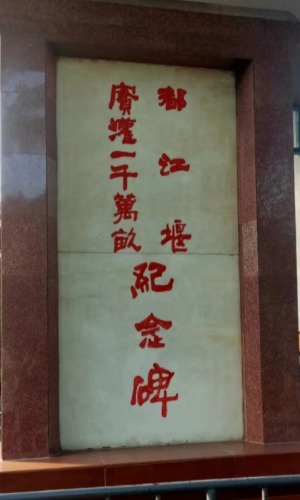 都江堰
實灌一千萬畝
紀念碑